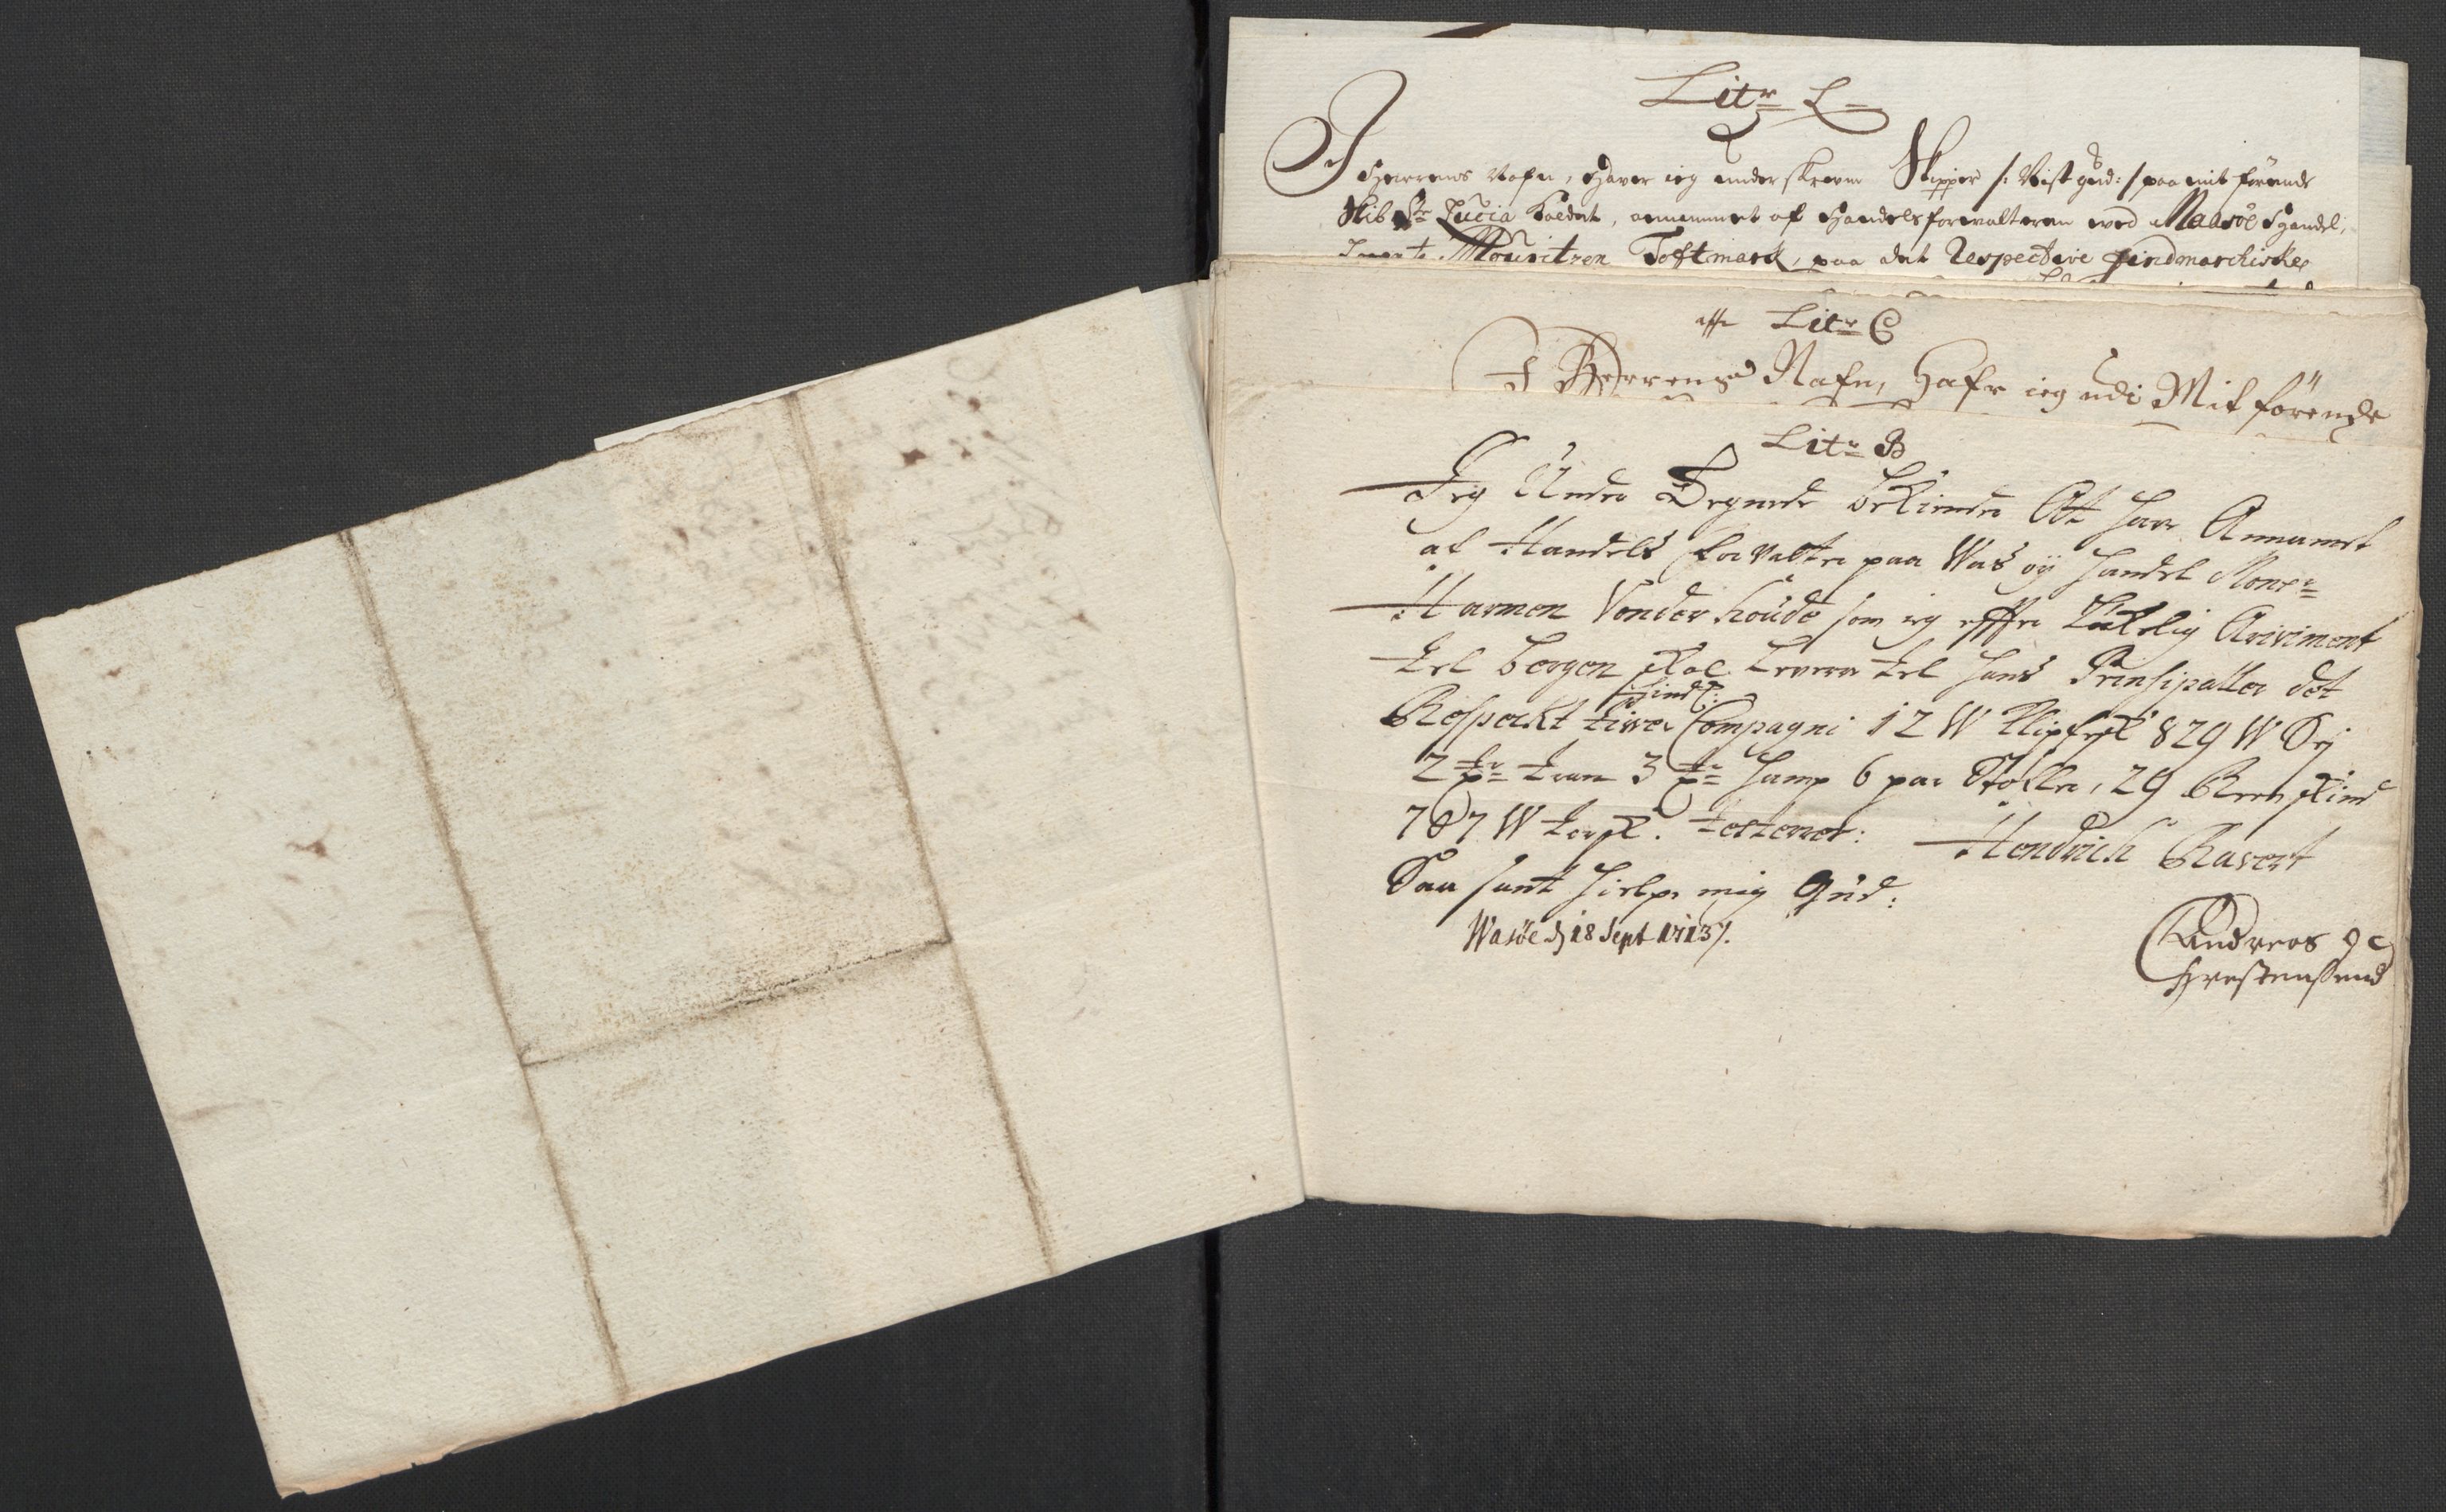 Litr L
I Herrens Nafn, Haver ieg underskrevne Skipper /: Nest Gud :/ paa mit förende
Skib St Lucia kaldet, annammet af Handelsforvalteren ved Maasöe Handel,
Mouritzen Toftmark, paa det Respective Findmarchiske
Litr C
I Herrens Nafn, Hafr ieg udi Mit förende
Litr B
Jeg Under Tegnede bekiender Att have Annamet
af Handels forvalter paa Was öÿ handel Monsr
Harmen Vonder houde som ieg effter Lökelig Ariviment
tel bergen skal Levere tel hans Prinsipaller det
Respeckt tiwe Findl: Compagni 12 W klipfisk 829 W Sej
2 tr tran 3 tr hamp 6 par Stöfler, 29 Rens skind
787 W torsk. testerer: Hendrich Ravert
Saa sant hielpe mig Gud:
Wasöe d 18 Sept 1713/.
Andreas
Chrestensend